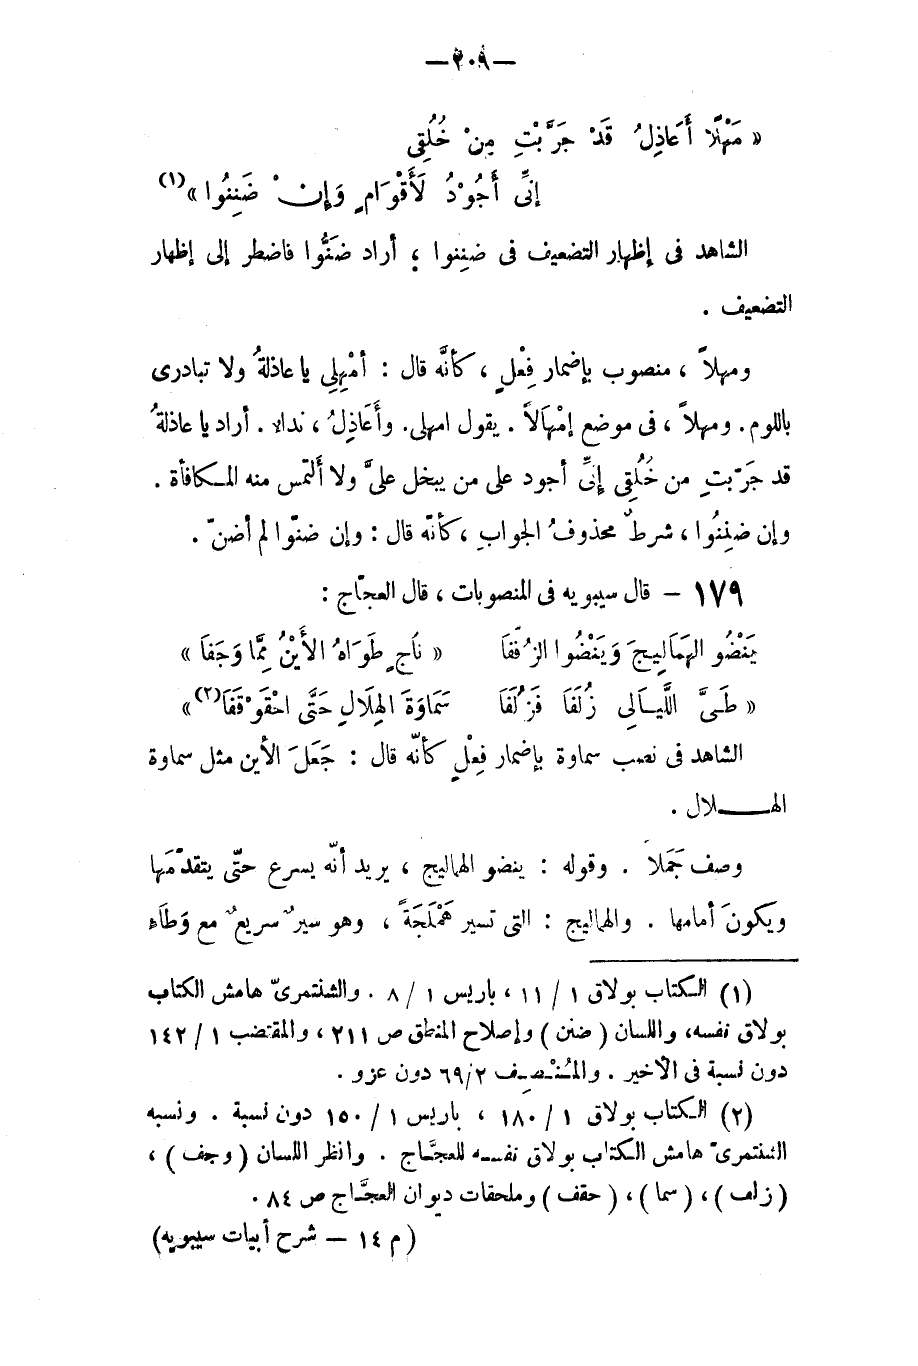 — ٢٠٩ —
« مَهْلًا أَعَاذِلُ قَدْ جَرَّبْتِ مِنْ خُلُقِى
إِنِّى أَجُوْدُ لَأَقْوَامٍ وَإِنْ ضَنِنُوا »(١)
الشاهد فى إظهار التضعيف فى ضنِنوا ؛ أراد ضَنُّوا فاضطر إلى إظهار
التضعيف .
ومهلاً ، منصوب بإضمار فِعْلٍ ، كأنَّه قال : أمْهِلِى يا عاذلةُ ولا تبادرى
باللوم . ومهلاً ، فى موضع إمْهَالاً . يقول امهلى . وأَعَاذِلُ ، نداء . أراد يا عاذلةُ
قد جَرّبتِ من خُلُقِى إِنِّى أجود على من يبخل علىَّ ولا أَلتمس منه المكافأة .
وإن ضَنِنُوا ، شرطٌ محذوفُ الجوابِ ، كأنّه قال : وإن ضنّوا لم أضنّ .
١٧٩ — قال سيبويه فى المنصوبات ، قال العجّاج :
يَنْضُو الهَمَالِيجَ وَيَنْضُوا الزُفَّفَا « نَاجٍ طَوَاهُ الأَيْنُ مِمَّا وَجَفَا »
« طَىَّ اللَّيَالِى زُلَفَا فَزُلَفَا سَمَاوَةَ الهِلَالِ حَتَّى احْقَوْقَفَا(٢)»
الشاهد فى نصب سماوة بإضمار فِعْلٍ كأنّه قال : جَعَلَ الأين مثل سماوة
الهـــلال .
وصف جَمَلاً . وقوله : ينضو الهماليج ، يريد أنّه يسرع حتّى يتقدّمَها
ويكونَ أمامها . والهماليج : التى تسير هَمْلَجَةً ، وهو سيرٌ سريعٌ مع وَطَاءِ
(١) الكتاب بولاق ١ / ١١ ، باريس ١ / ٨ . والشنتمرىّ هامش الكتاب
بولاق نفسه، واللسان ( ضنن ) وإصلاح المنطق ص ٢١١ ، والمقتضب ١ / ١٤٢
دون نسبة فى الأخير . والمُنْصِف ٢/٦٩ دون عزو .
(٢) الكتاب بولاق ١ / ١٨٠ ، باريس ١ / ١٥٠ دون نسبة . ونسبه
الشنتمرىّ هامش الكتاب بولاق نفسه للعجَّاج . وانظر اللسان ( وجف ) ،
( زلف ) ، ( سما ) ، ( حقف ) وملحقات ديوان العجَّاج ص ٨٤ .
( م ١٤ — شرح أبيات سيبويه)